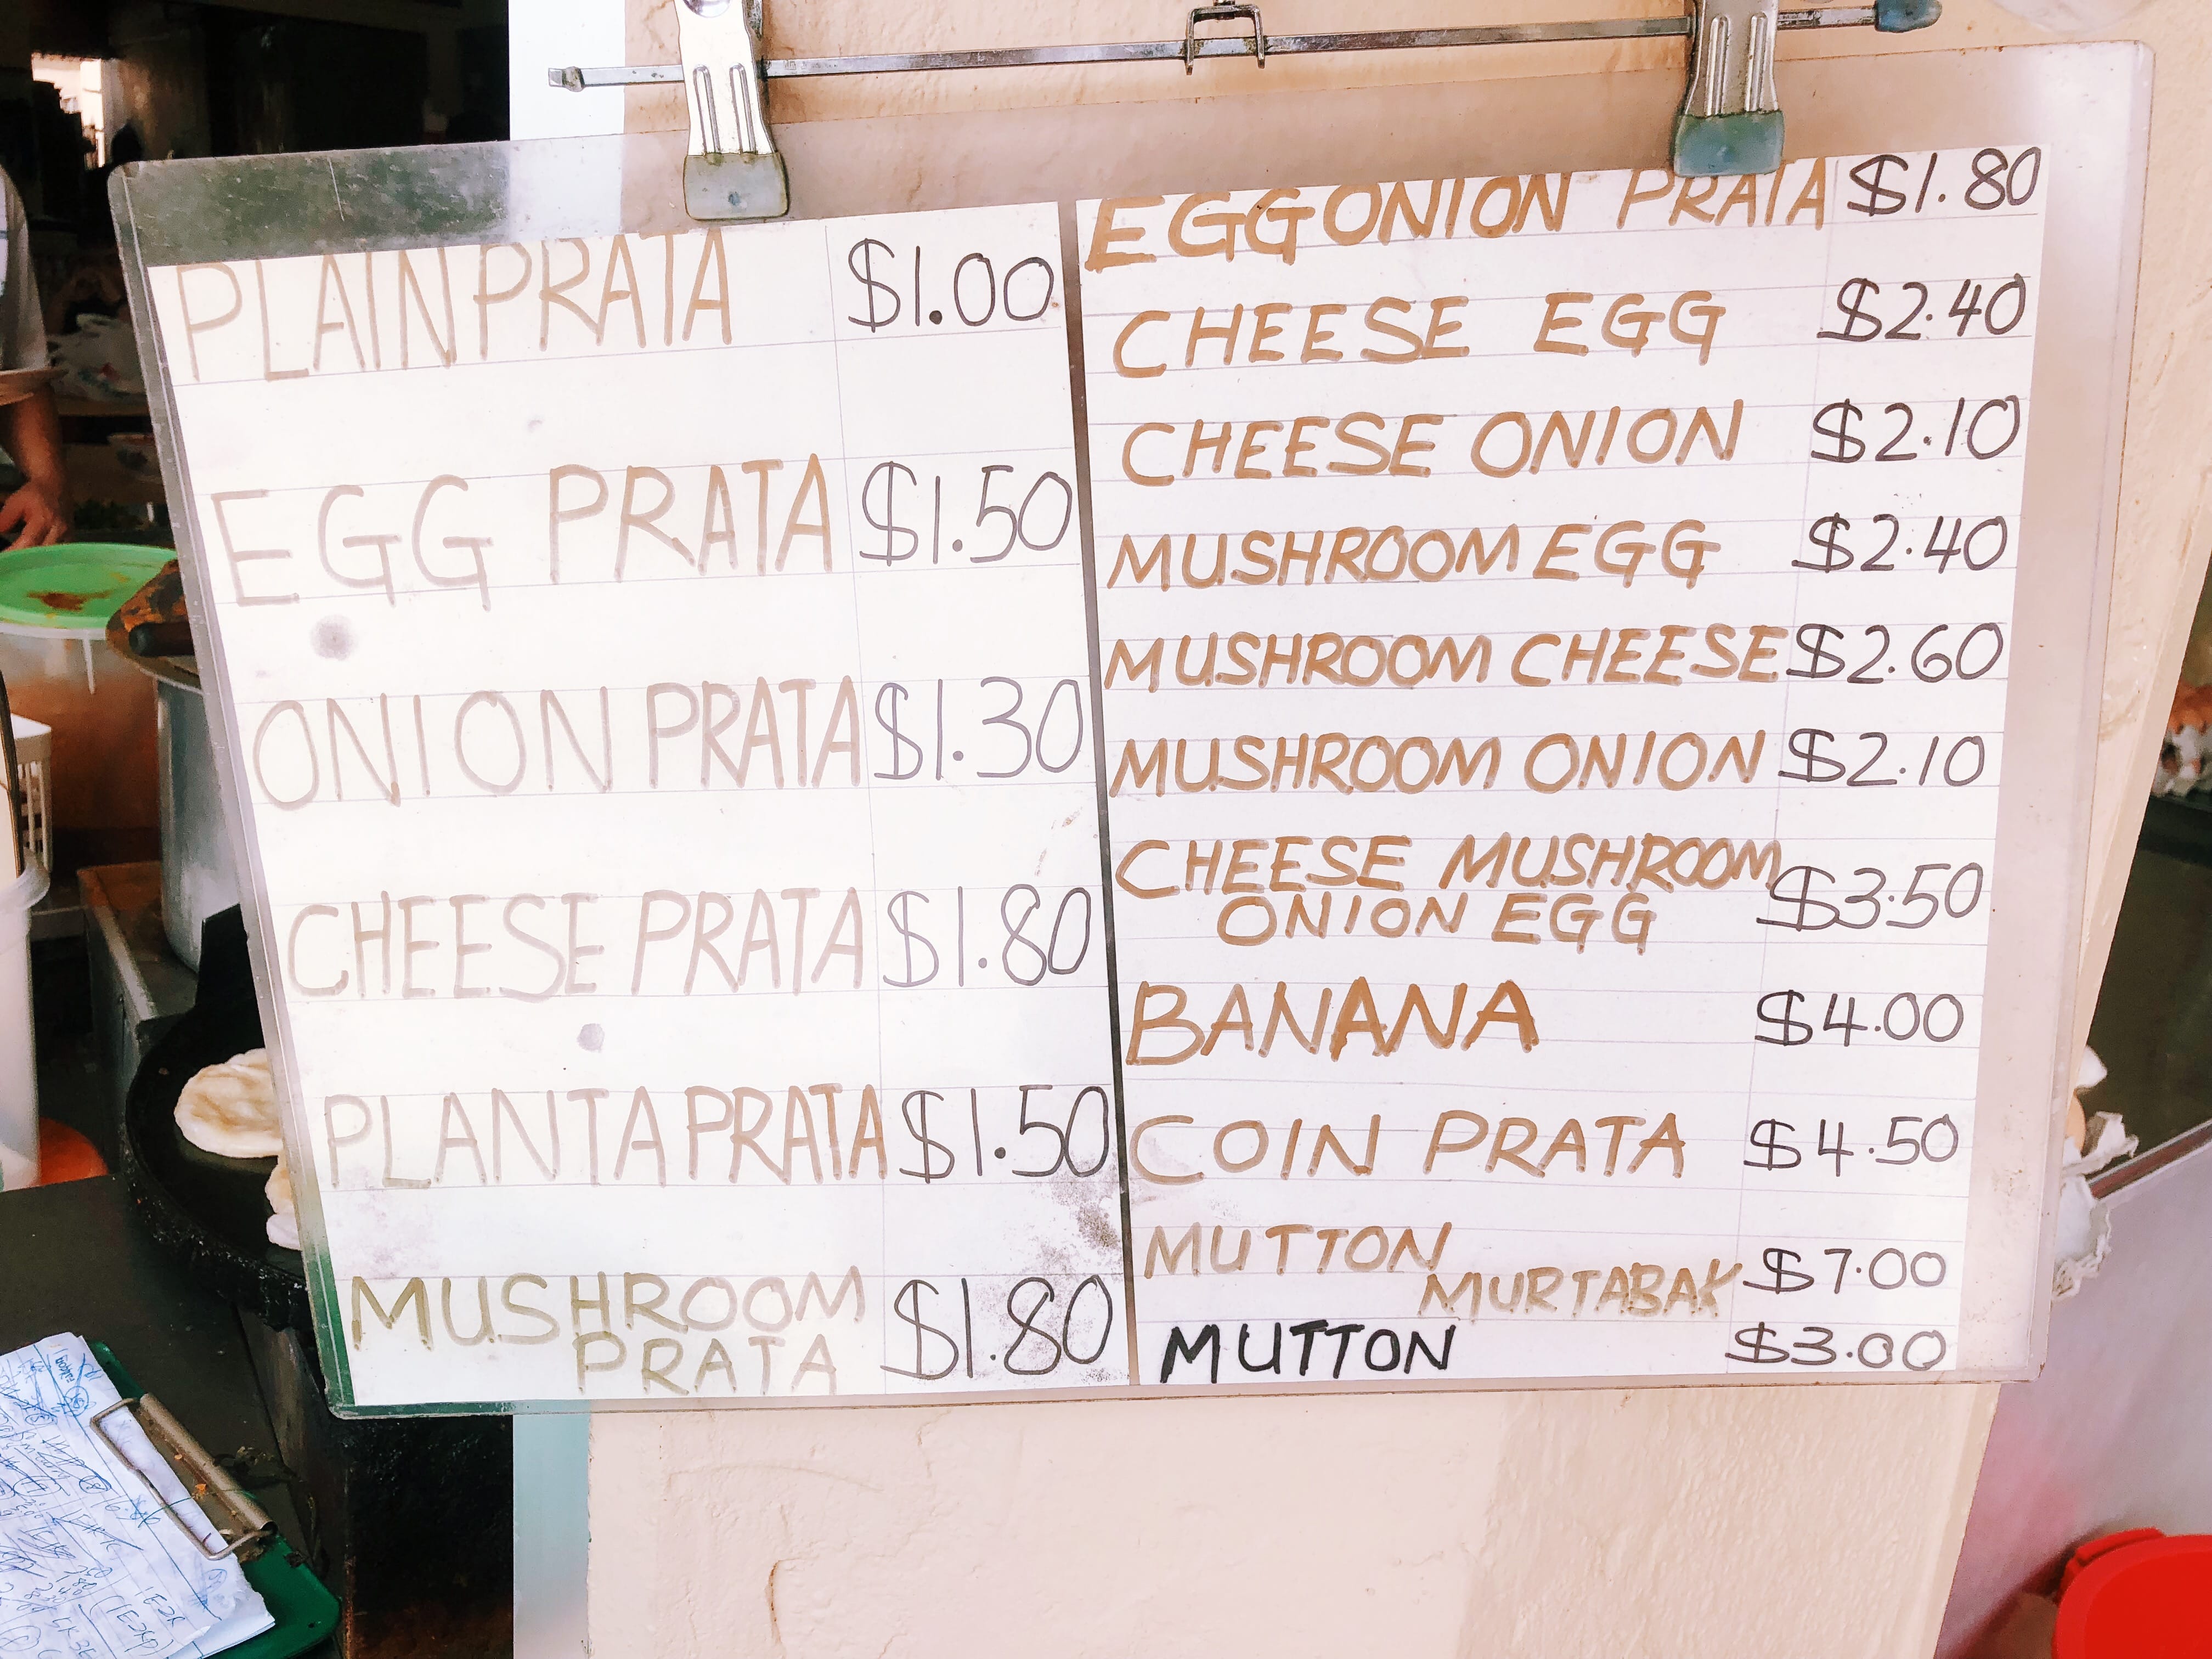 PLAIN PRATA $1.00
EGG PRATA $1.50
ONION PRATA $1.30
CHEESE PRATA $1.80
PLANTA PRATA $1.50
MUSHROOM
PRATA $1.80
EGG ONION PRATA $1.80
CHEESE EGG $2.40
CHEESE ONION $2.10
MUSHROOM EGG $2.40
MUSHROOM CHEESE $2.60
MUSHROOM ONION $2.10
CHEESE MUSHROOM
ONION EGG $3.50
BANANA $4.00
COIN PRATA $4.50
MUTTON
MURTABAK $7.00
MUTTON $3.00